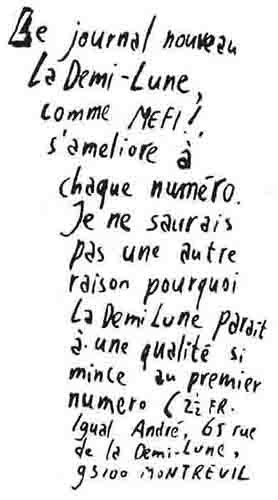 Le journal nouveau
La Demi-Lune,
comme MEFI!,
s'ameliore à
chaque numéro.
Je ne saurais
pas une autre
raison pourquoi
La Demi Lune parait
à une qualité si
mince au premier
numero (2½ FR.
Igual André, 65 rue
de la Demi-Lune,
93100 MONTREUIL